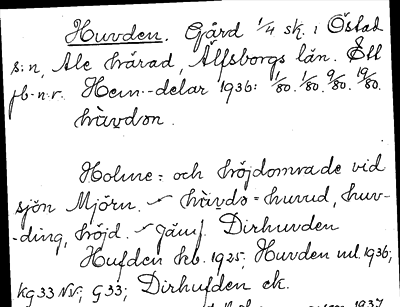 Huvden. Gård 1/4 sk. i Östad
s:n, Ale härad, Älfsborgs län. Ett
jb.n:r. Hem.-delar 1936: 1/80. 1/80. 9/80. 19/80.
hùvdon.
Holme= och höjdområde vid
sjön Mjörn. hùvdo = huvud, huv-
-ding, höjd. Jämf. Dirhuvden
Hufden hb. 1925; Huvden ml. 1936;
kg 33 NV; G 33; Dirhufden ek.
1937